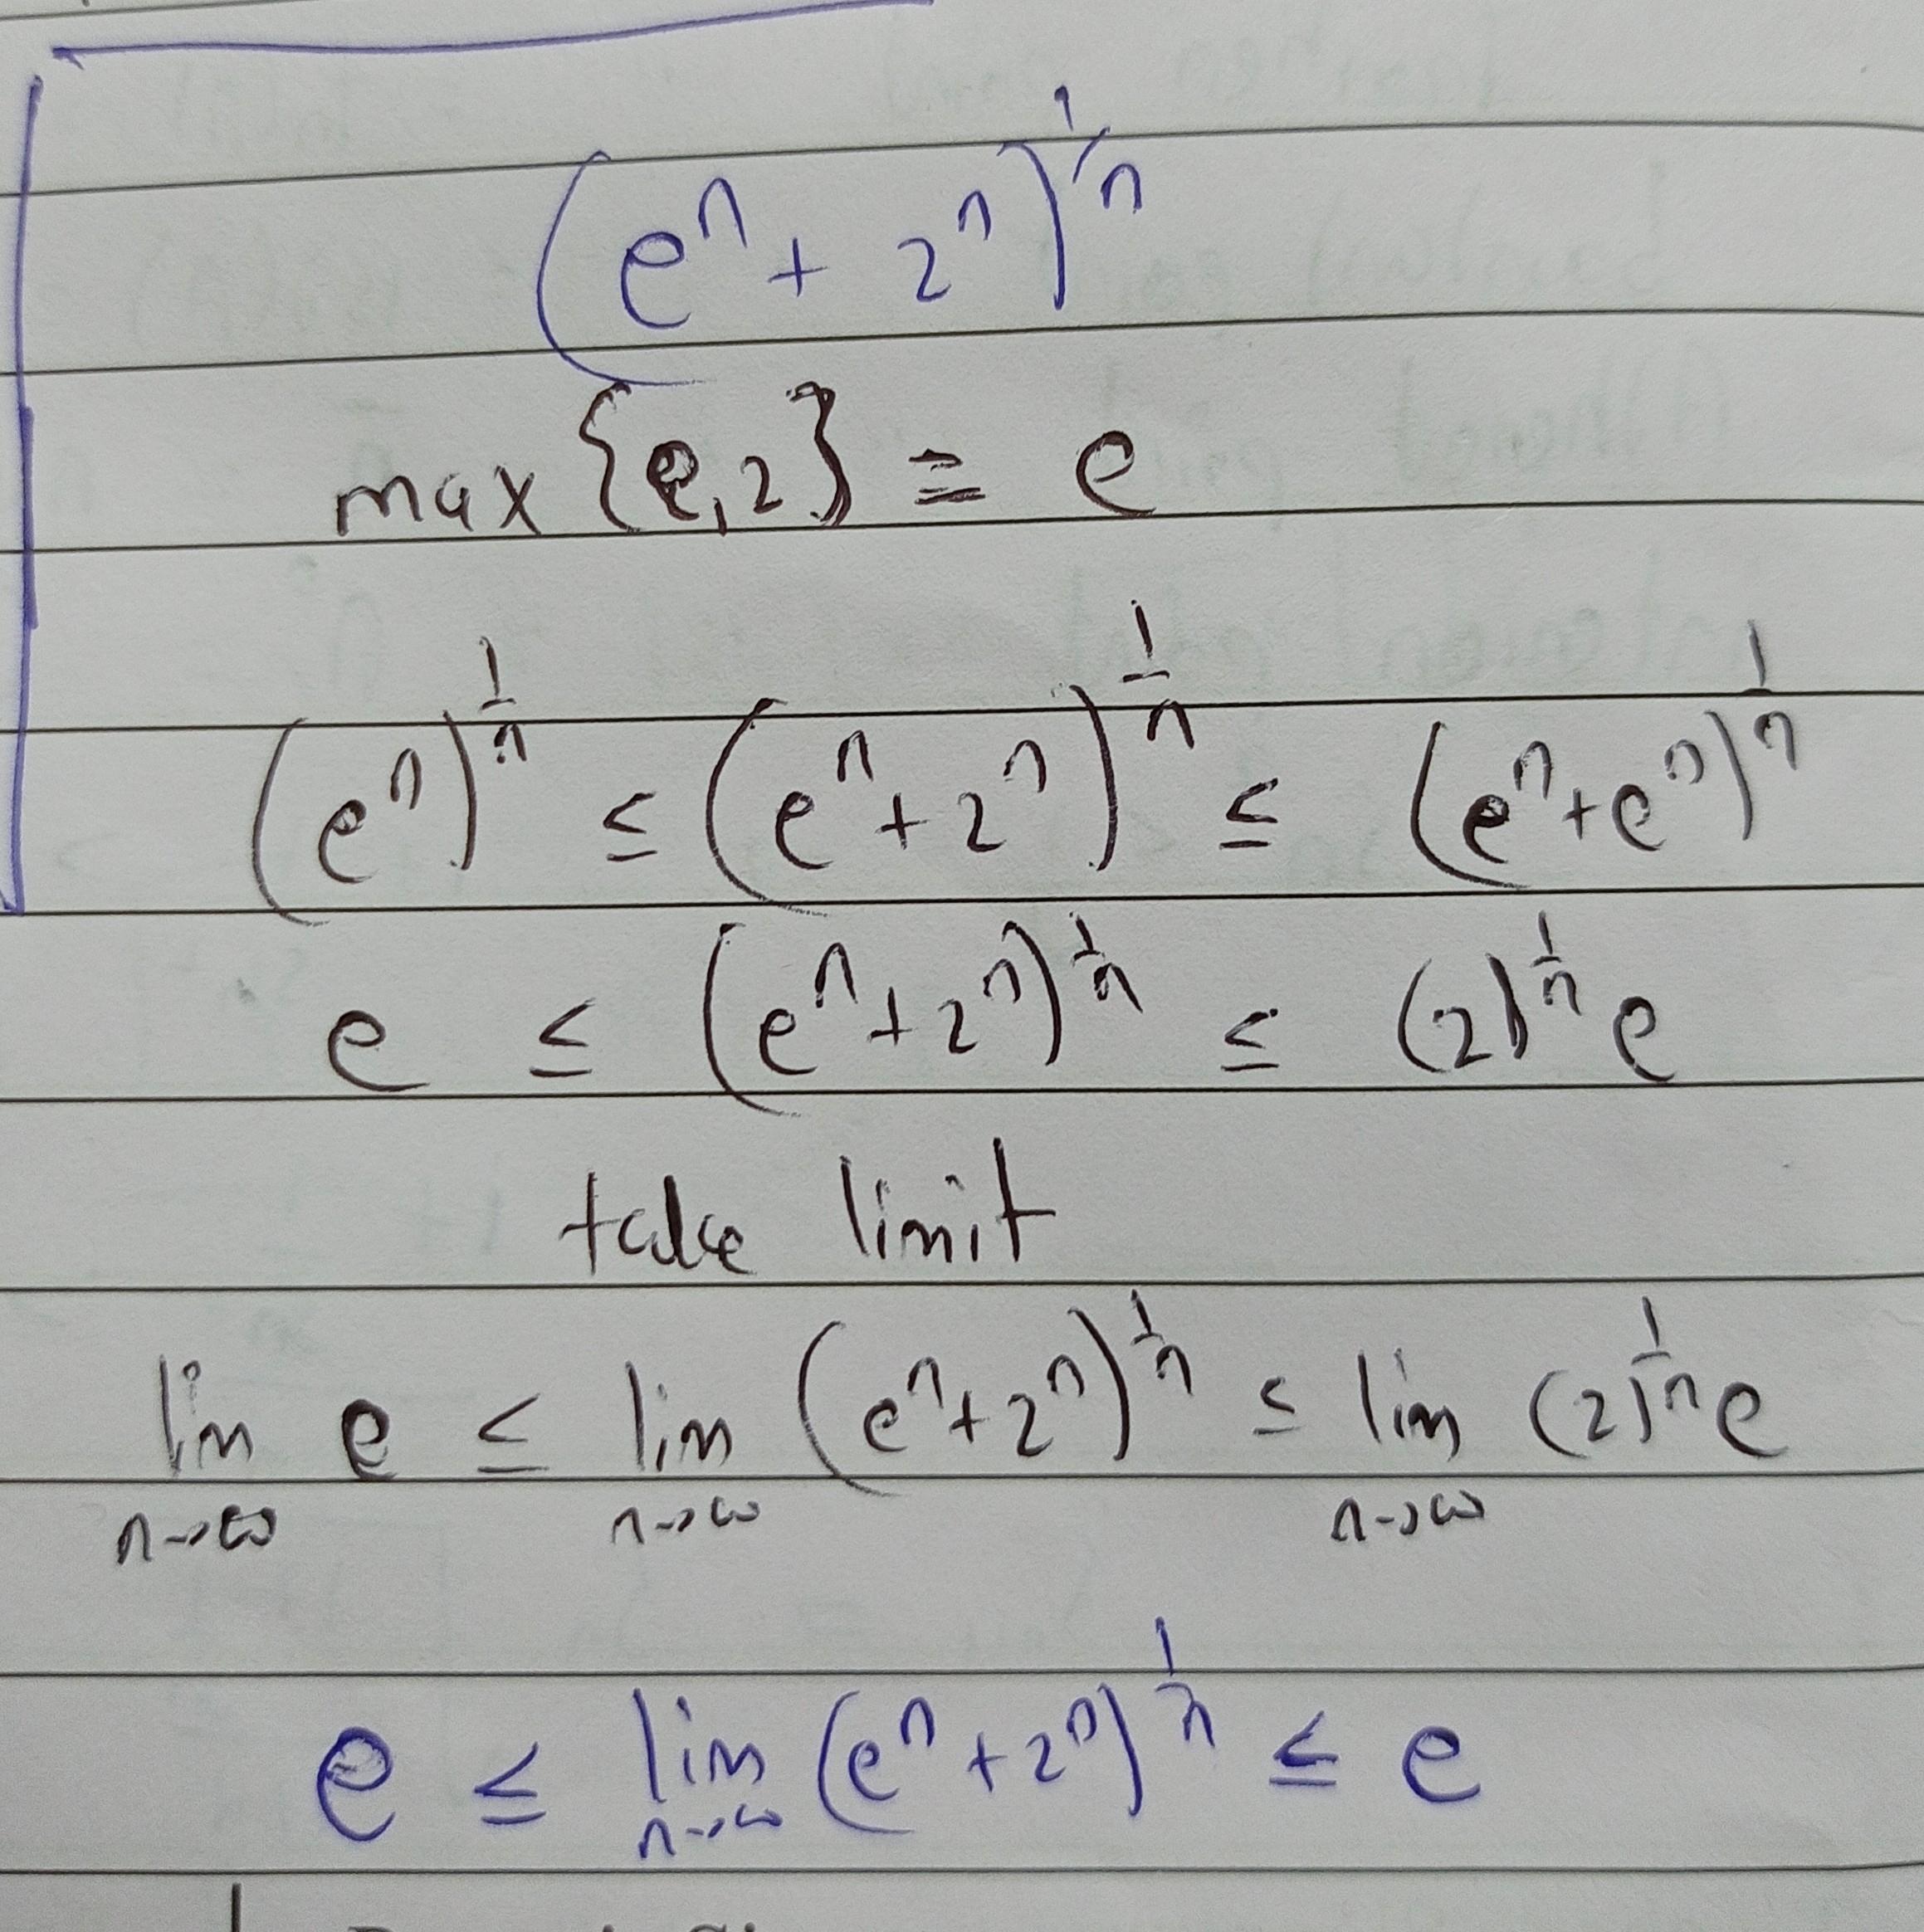 (eⁿ + 2ⁿ)^1/n
max {e,2} = e
(eⁿ)^1/n ≤ (eⁿ+2ⁿ)^1/n ≤ (eⁿ+eⁿ)^1/n
e ≤ (eⁿ+2ⁿ)^1/n ≤ (2)^1/n e
take limit
lim n→∞ e ≤ lim n→∞ (eⁿ+2ⁿ)^1/n ≤ lim n→∞ (2)^1/n e
e ≤ lim n→∞ (eⁿ+2ⁿ)^1/n ≤ e